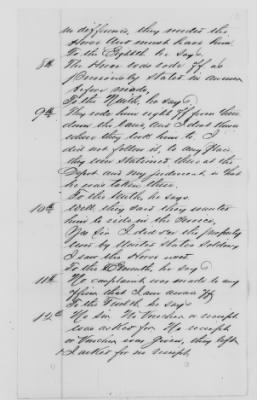 no difference, they wanted the
Horse and must have him.
To the Eighth he says
8th The Horse was rode off as
previously stated in answer
before made,
To the Ninth, he says
9th They rode him right off from there
down the Road, and I dont know
where they took him to I
did not follow it, to any place
they were Stationed there at the
Depot and my judgment is that
he was taken there.
To the Tenth, he says
10th Well, they said they wanted
him to ride in the Service,
No Sir I did see the property
used by United States Soldiers
I saw the Horse used
To the Eleventh, he says
11th No complaint was made to any
Officer that I am aware of
To the Twelfth, he says
12th No Sir No Voucher or receipt
was asked for. No receipt
or Voucher was given, they left
I asked for no receipt.